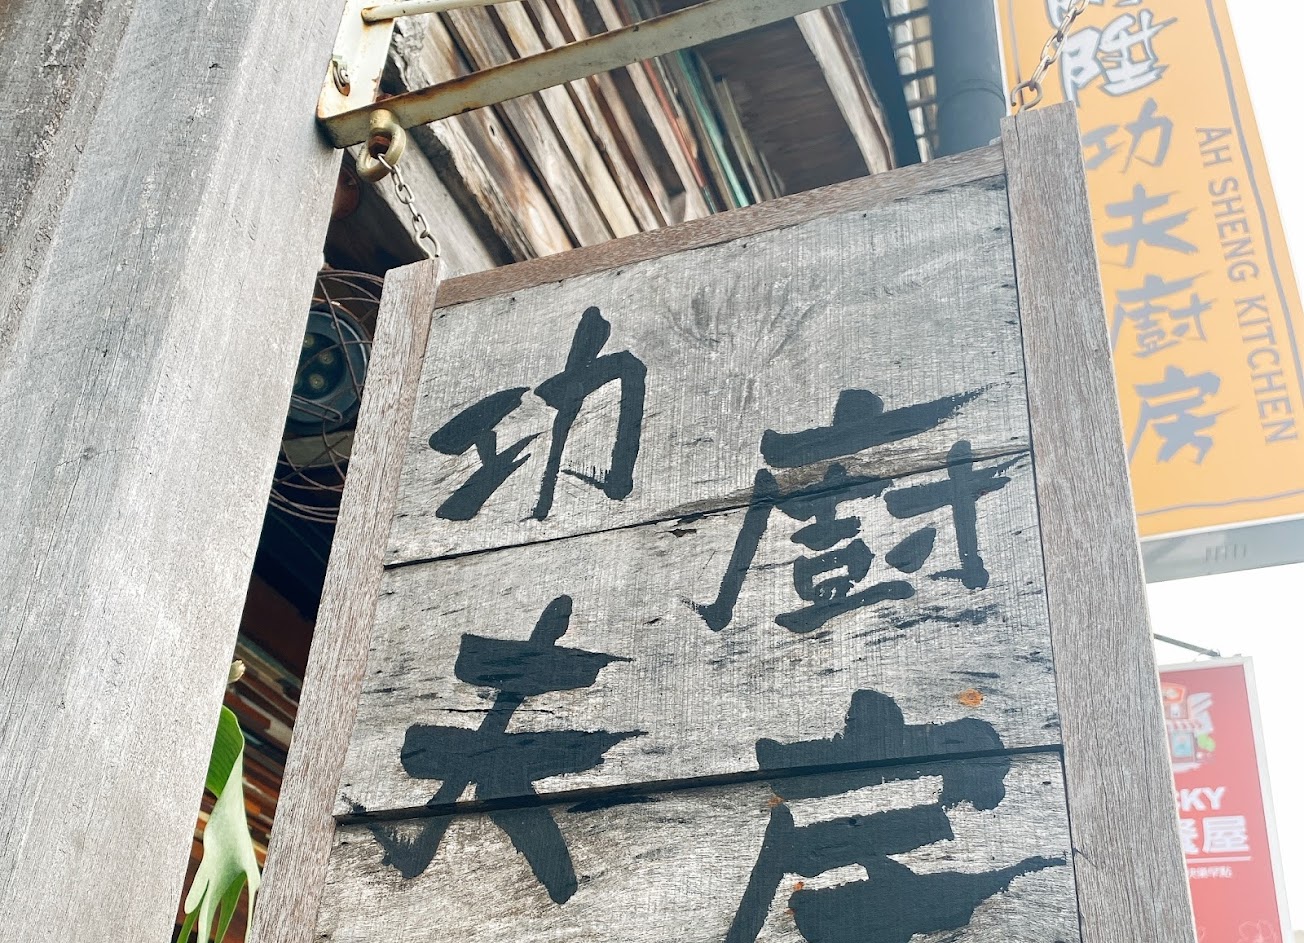 功夫
廚房
陞功夫廚房
AH SHENG KITCHEN
CKY
餐屋